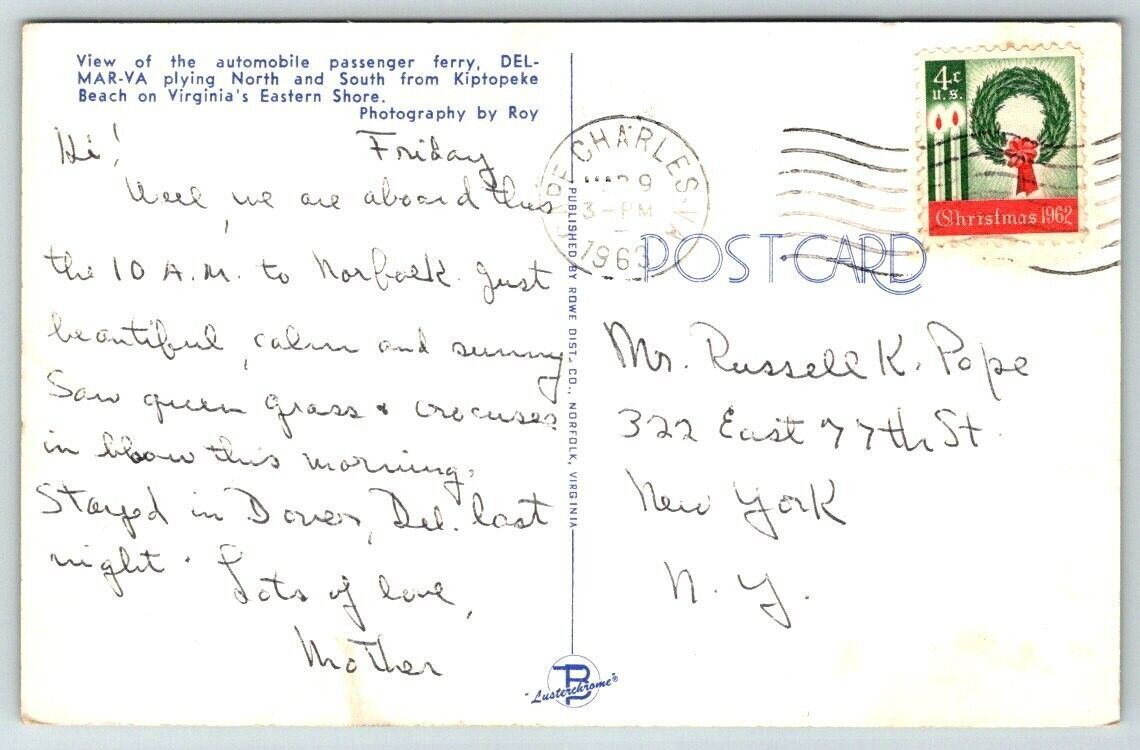 View of the automobile passenger ferry, DEL-
MAR-VA plying North and South from Kiptopeke
Beach on Virginia's Eastern Shore.
Photography by Roy
Hi! Friday
Well, we are aboard this
the 10 A.M. to Norfolk. Just
beautiful, calm and sunny
Saw green grass & crocuses
in bloom this morning.
Stayed in Dover, Del. last
night. Lots of love,
Mother
PUBLISHED BY ROWE DIST. CO., NORFOLK, VIRGINIA
"Lusterchrome"®
CHARLES. VA
29
3-PM
1963
4c
U.S.
Christmas 1962
POST CARD
Mr. Russell K. Pope
322 East 77th St.
New York
N. Y.